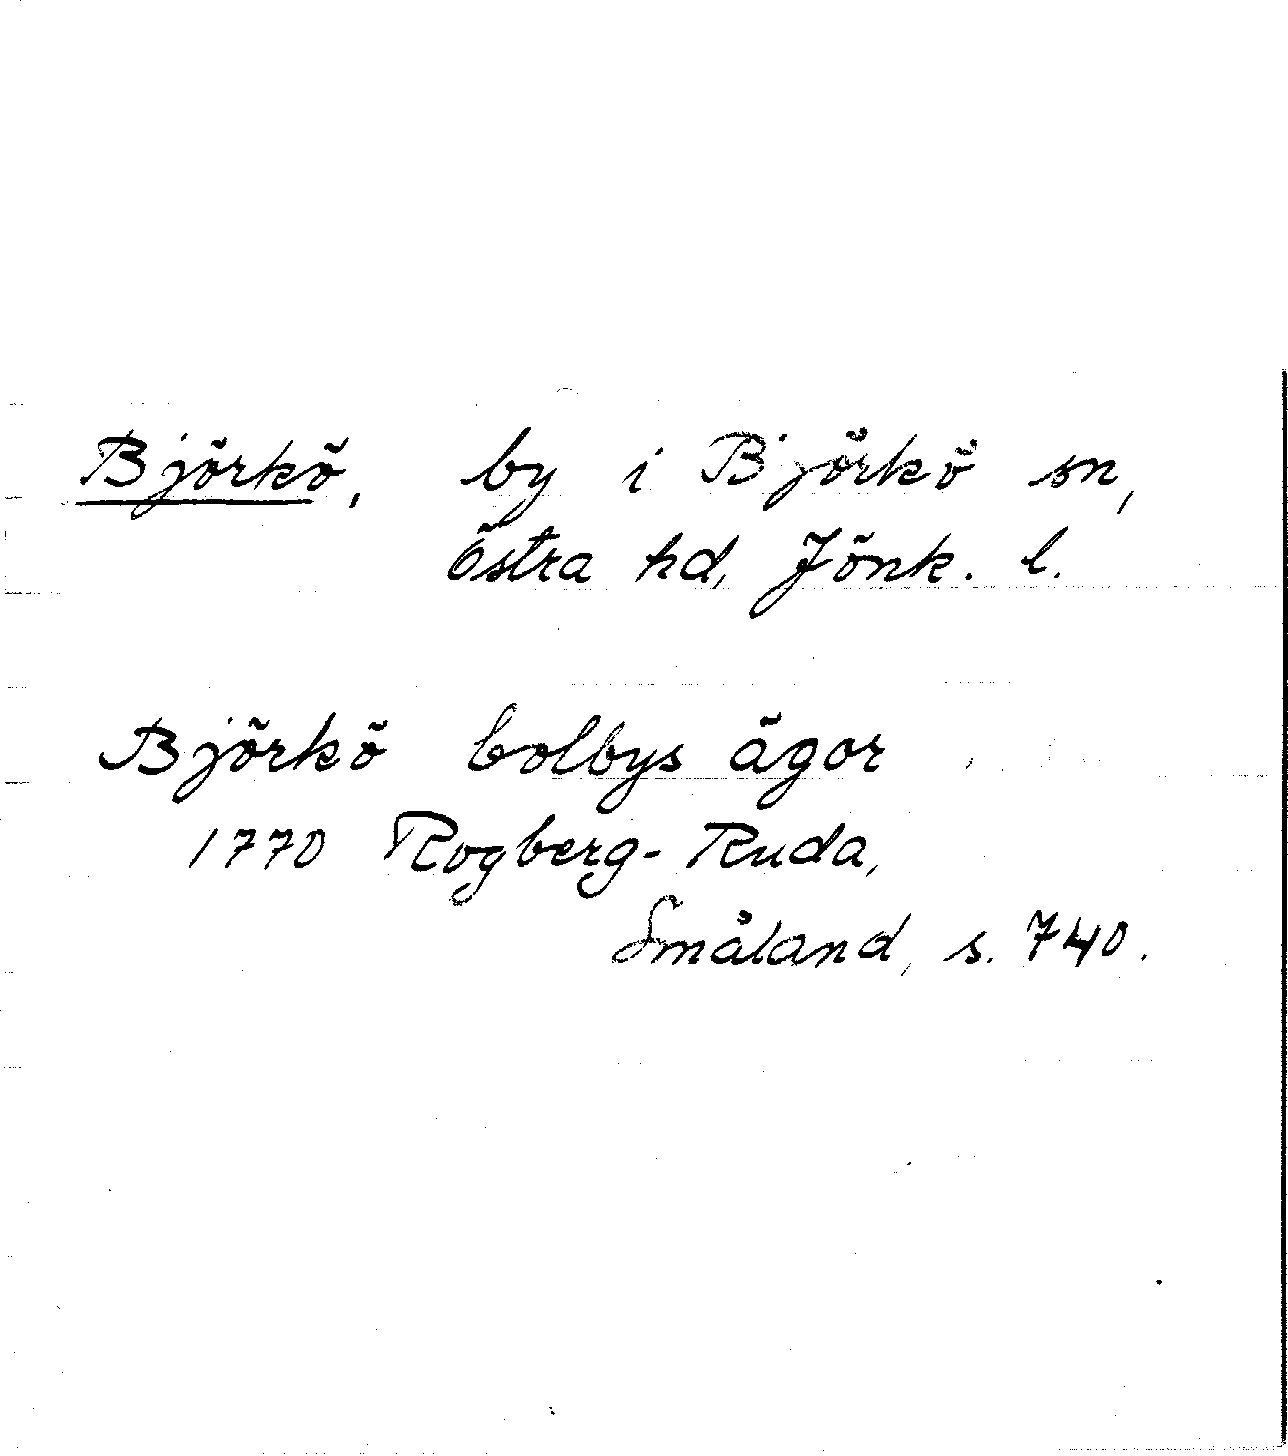 Björkö, by i Björkö sn,
Östra hd, Jönk. l.
Björkö bolbys ägor
1770 Rogberg-Ruda,
Småland, s. 740.